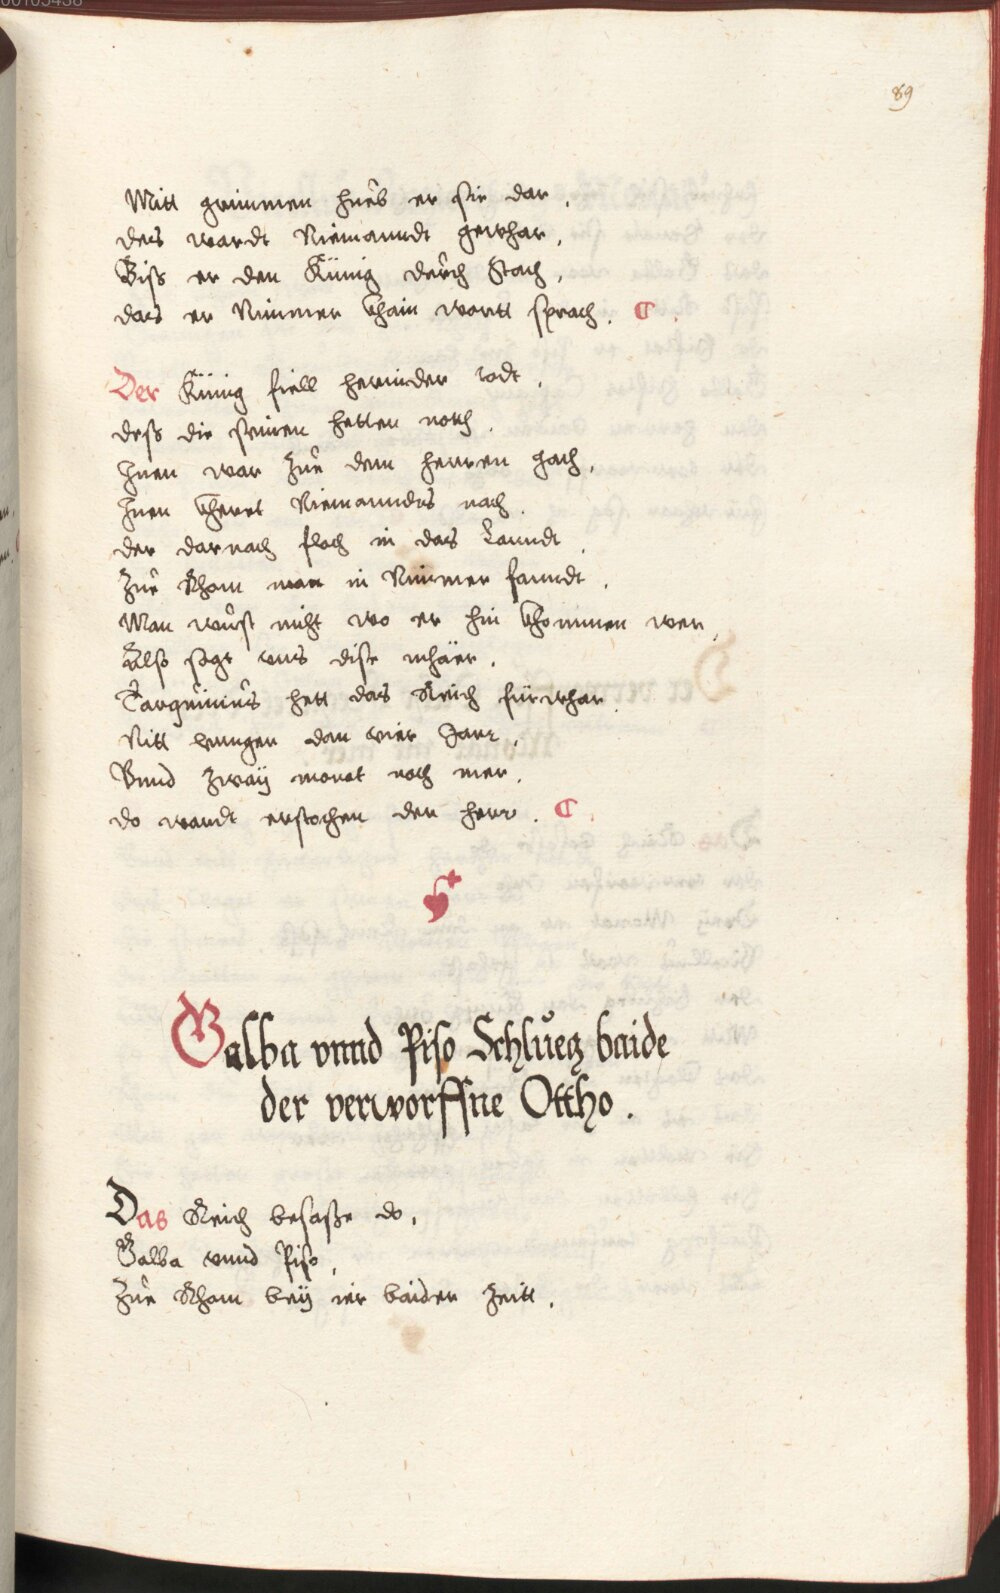 00105438
89
Mitt grimmen hueb er sie dar,
des wardt Niemanndt gewhar,
Biss er den Künig durch stach,
das er Nimmer khain wortt sprach.
Der Künig fiell herinder todt,
dess die seinen hetten noth.
Inen war zue dem herren gach,
Inen khert Niemanndes nach.
der darnach floch in das Lanndt
Zue Rhom man in Nimmer fanndt.
Man wust nicht wo er hin khommen wer,
Also sagt vns dise mhäer.
Tarquinius hett das Reich fürwhar
Nitt lennger dan vier Jarr,
Vnnd zwaÿ monet noch mer,
do wardt erstochen der herr.
Galba vnnd Piso Schlueg baide
der verworffne Ottho.
Das Reich besasse do,
Galba vnnd Piso,
Zue Rhom beÿ ier baider Zeitt,